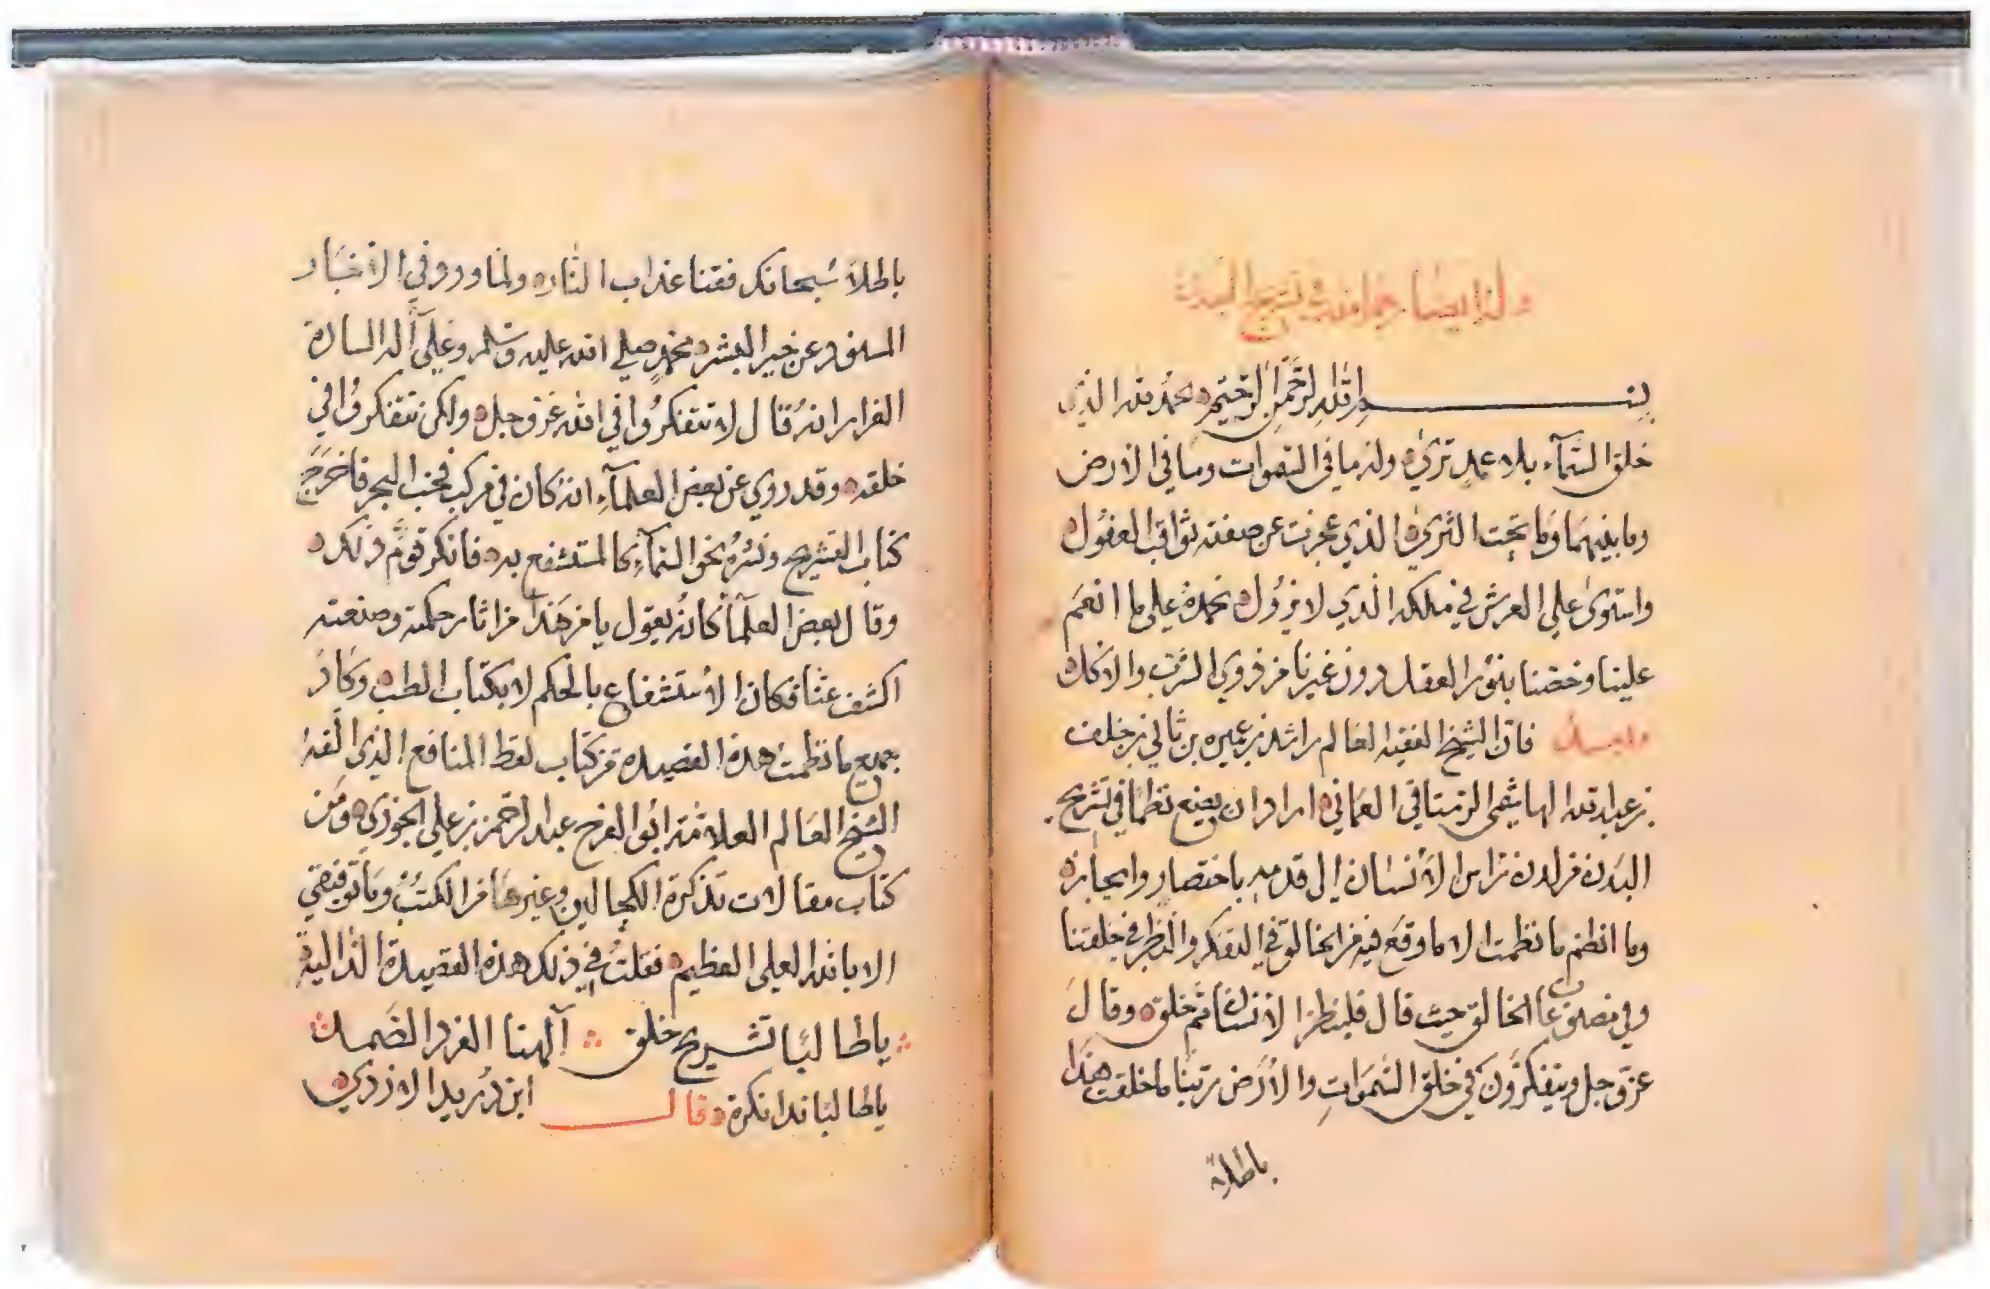 وله ايضا رحمه الله في تشريح البدن
بسم الله الرحمن الرحيم نحمد لله الذي
خلق السماء بلا عمد ترى وله ما في السموات وما في الارض
وما بينهما وما تحت الثرى الذي عجزت عن صفته ثواقب العقول
واستوى على العرش في ملكه الذي لا يزول نحمده على ما انعم
علينا وخصنا بنور العقل دون غيرنا من ذوي الشرب والاكل
وبعد فان الشيخ الفقيه العالم راشد بن عميره بن ثاني بن خلف
بن عبد الله الهاشمي الرستاقي العماني اراد ان يصنع نظما في تشريح
البدن من لدن راس الانسان الى قدميه باختصار وايجاز
وما انظم ما نظمت الا ما وقع فيه من الخالق في التفكر والنظر في خلقتنا
وفي مصنوعات الخالق حيث قال فلينظر الانسان مم خلق وقال
عز وجل ويتفكرون في خلق السموات والارض ربنا ما خلقت هذا
باطلا
باطلا سبحانك فقنا عذاب النار ولما ورد في الاخبار
المسنود عن خير البشر محمد صلى الله عليه وسلم وعلى آله السادة
الغرا انه قال لا تتفكروا في الله عز وجل ولكن تتفكروا في
خلقه وقد روي عن بعض العلماء انه كان في مركب فخب البحر فاخرج
كتاب التشريح ونشره نحو السماء كالمستشفع به فانكر قوم ذلك
وقال بعض العلماء كانه يقول يا من هذا من اثار حكمته وصنعته
اكشف عنا فكان الاستشفاع بالحكم لا بكتاب الطب وكان
جميع ما نظمت هذه القصيدة من كتاب لقط المنافع الذي الفه
الشيخ العالم العلامة ابو الفرج عبد الرحمن بن علي الجوزي ومن
كتاب مقالات تذكرة الكحالين وغيرها من الكتب وما توفيقي
الا بالله العلي العظيم فقلت في ذلك هذه القصيدة الدالية
يا طالبا تشريح خلق آلهنا الفرد الصمد
يا طالبا ندا نكرة وقال ابن دريد الازدي